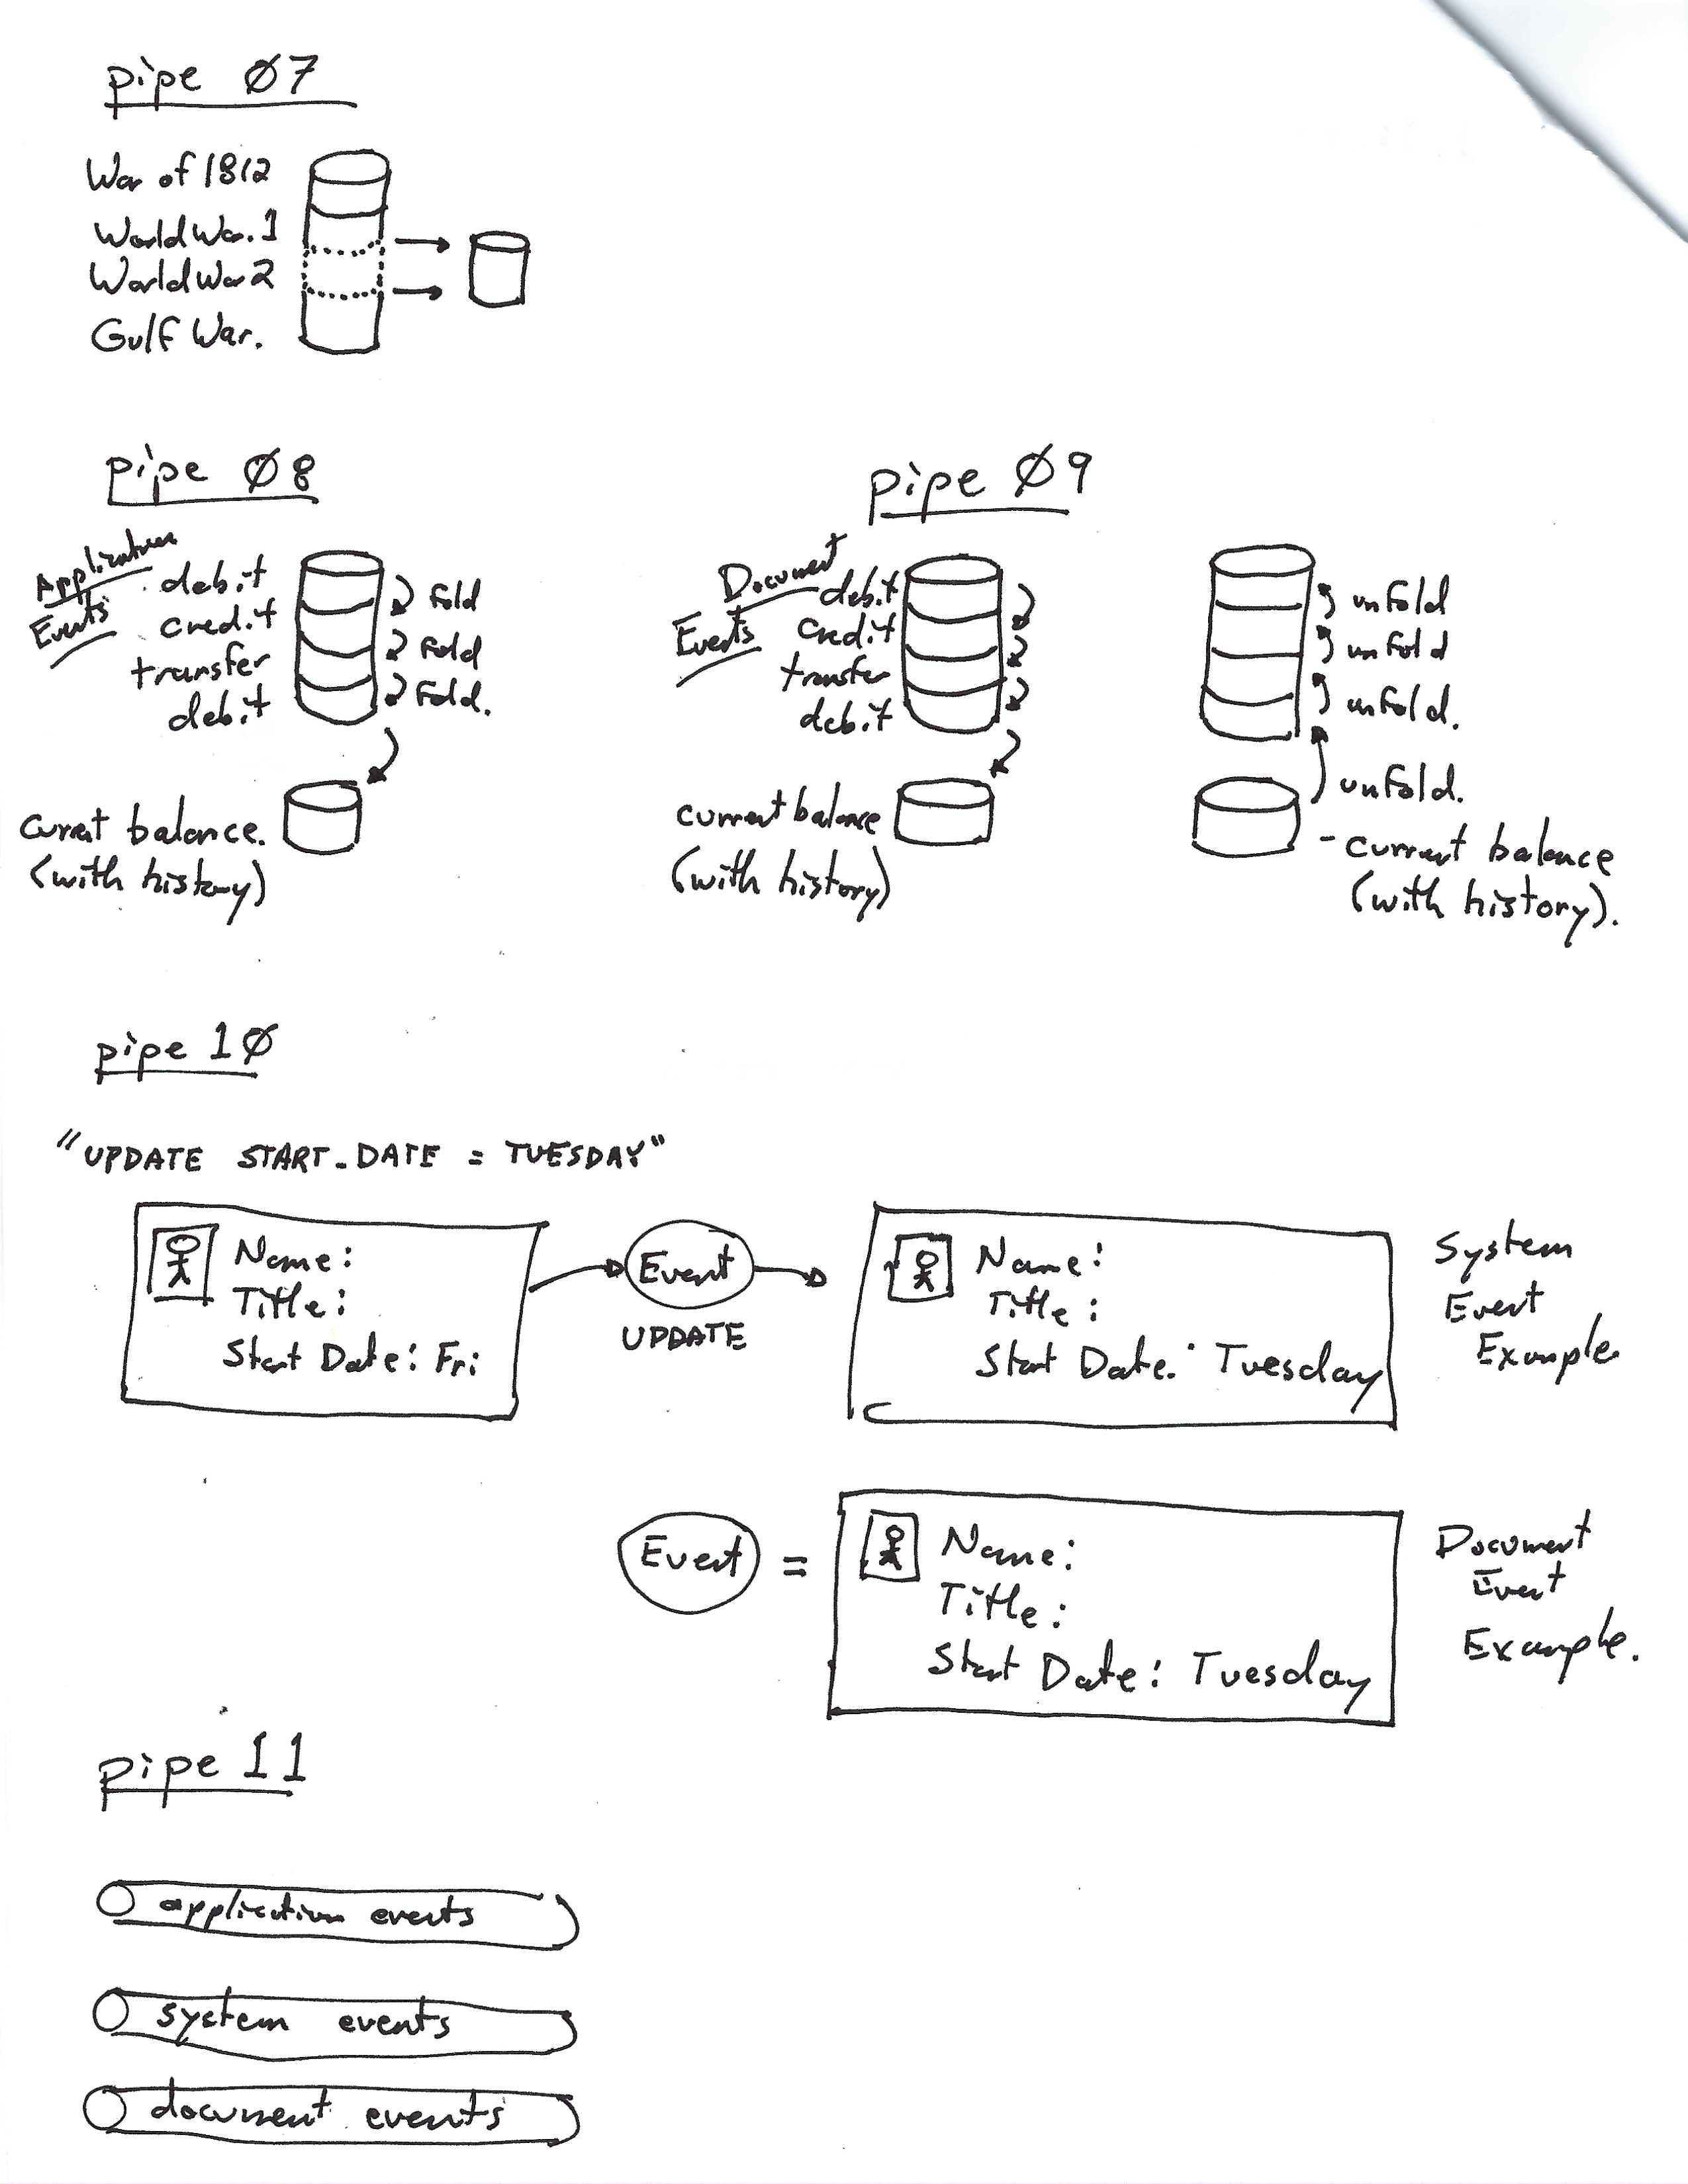 pipe Ø7
War of 1812
World War 1
World War 2
Gulf War.
pipe Ø8
Application
Events
debit
credit
transfer
debit
fold
fold
fold.
current balance.
(with history)
pipe Ø9
Document
Events
debit
credit
transfer
debit
current balance
(with history)
unfold
unfold
unfold.
unfold.
- current balance
(with history).
pipe 1Ø
"UPDATE START_DATE = TUESDAY"
Name:
Title:
Start Date: Fri
Event
UPDATE
Name:
Title:
Start Date: Tuesday
System
Event
Example
Event =
Name:
Title:
Start Date: Tuesday
Document
Event
Example.
pipe 11
application events
system events
document events